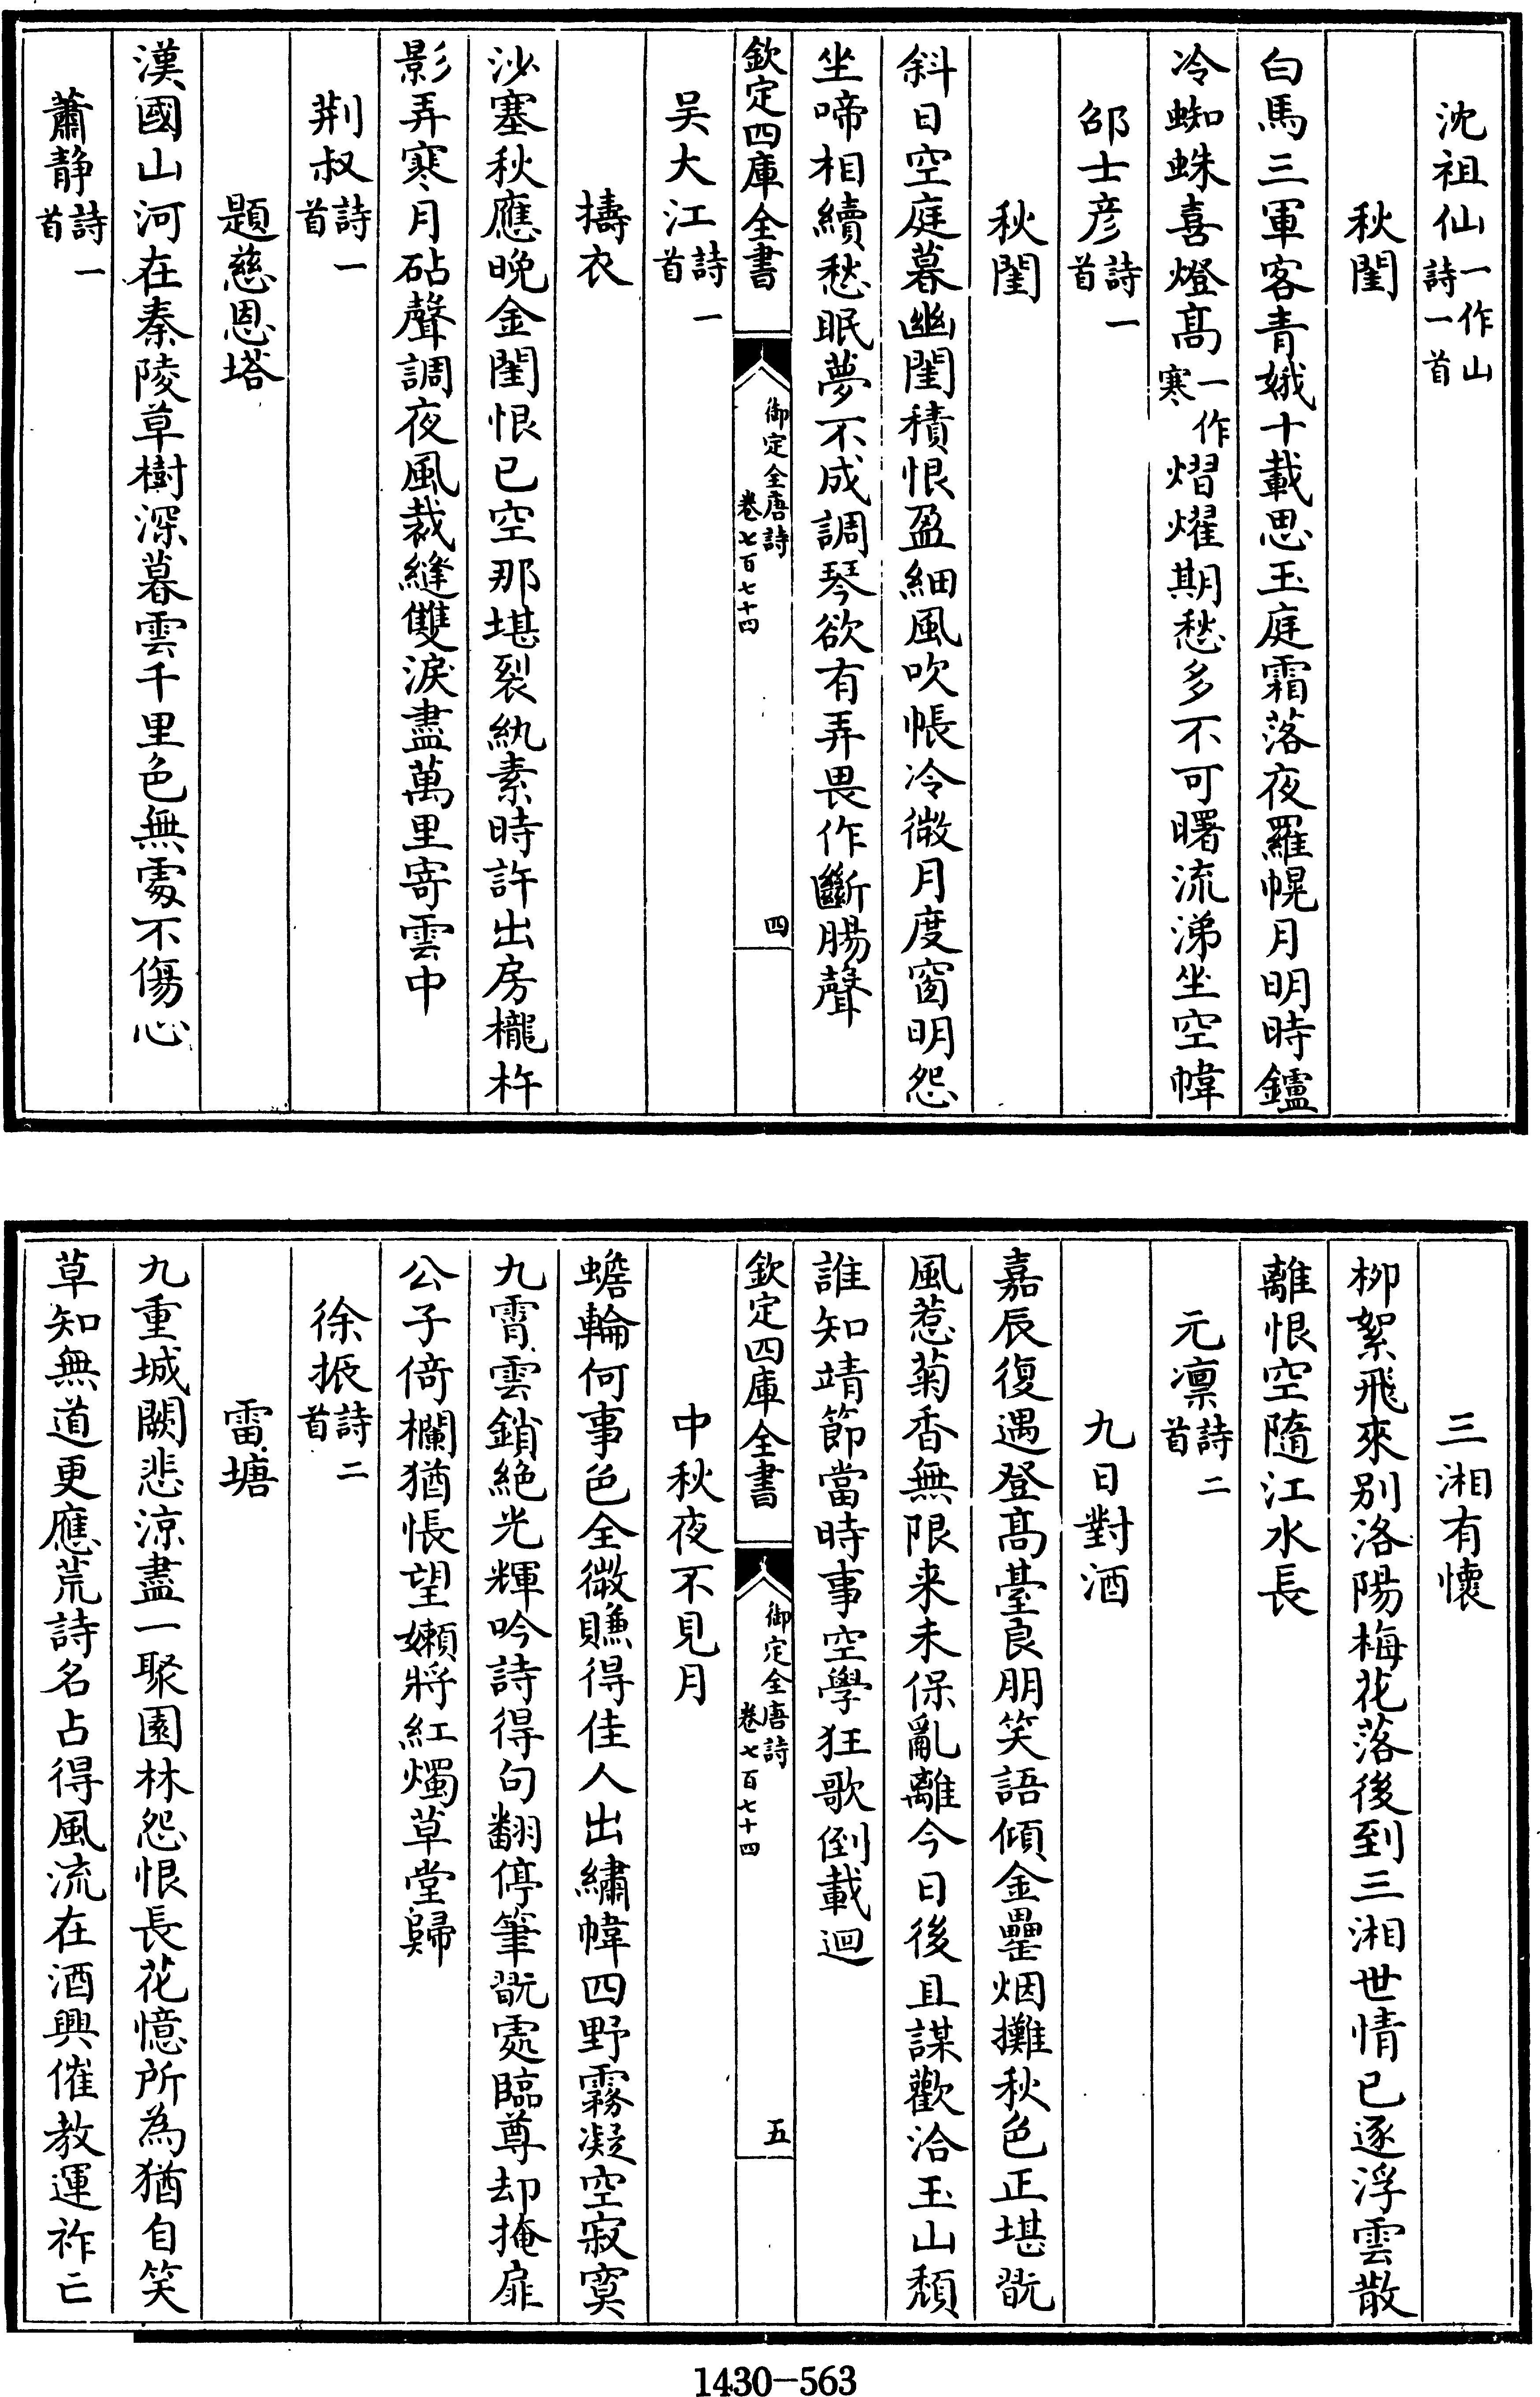 沈祖仙一作山詩一首
秋閨
白馬三軍客青娥十載思玉庭霜落夜羅幌月明時鑪
冷蜘蛛喜燈髙一作寒熠燿期愁多不可曙流涕坐空幃
邵士彦詩一首
秋閨
斜日空庭暮幽閨積恨盈細風吹帳冷微月度窗明怨
坐啼相續愁眠夢不成調琴欲有弄畏作斷腸聲
欽定四庫全書
御定全唐詩
卷七百七十四
四
吴大江詩一首
擣衣
沙塞秋應晚金閨恨已空那堪裂紈素時許出房櫳杵
影弄寒月砧聲調夜風裁縫雙淚盡萬里寄雲中
荆叔詩一首
題慈恩塔
漢國山河在秦陵草樹深暮雲千里色無處不傷心
蕭静詩一首
三湘有懷
栁絮飛來别洛陽梅花落後到三湘世情已逐浮雲散
離恨空隨江水長
元凛詩二首
九日對酒
嘉辰復遇登髙臺良朋笑語傾金罍烟攤秋色正堪翫
風惹菊香無限来未保亂離今日後且謀歡洽玉山頽
誰知靖節當時事空學狂歌倒載迴
欽定四庫全書
御定全唐詩
卷七百七十四
五
中秋夜不見月
蟾輪何事色全微賺得佳人出繡幃四野霧凝空寂寞
九霄雲鎖絶光輝吟詩得句翻停筆翫處臨尊却掩扉
公子倚欄猶悵望嬾將紅燭草堂歸
徐振詩二首
雷塘
九重城闕悲涼盡一聚園林怨恨長花憶所為猶自笑
草知無道更應荒詩名占得風流在酒興催教運祚亡
1430-563